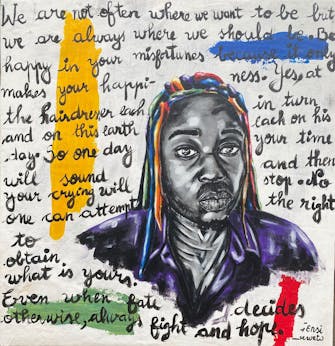 We are not often where we want to be but
we are always where we should be. Be
happy in your misfortunes because it only
makes your happi- ness. Yes, at
the hairdresser each in turn
and on this earth each on his
day. So one day your time
will sound and then
your crying will stop. No
one can attempt the right
to
obtain.
what is yours.
Even when fate decides
otherwise, always fight and hope.